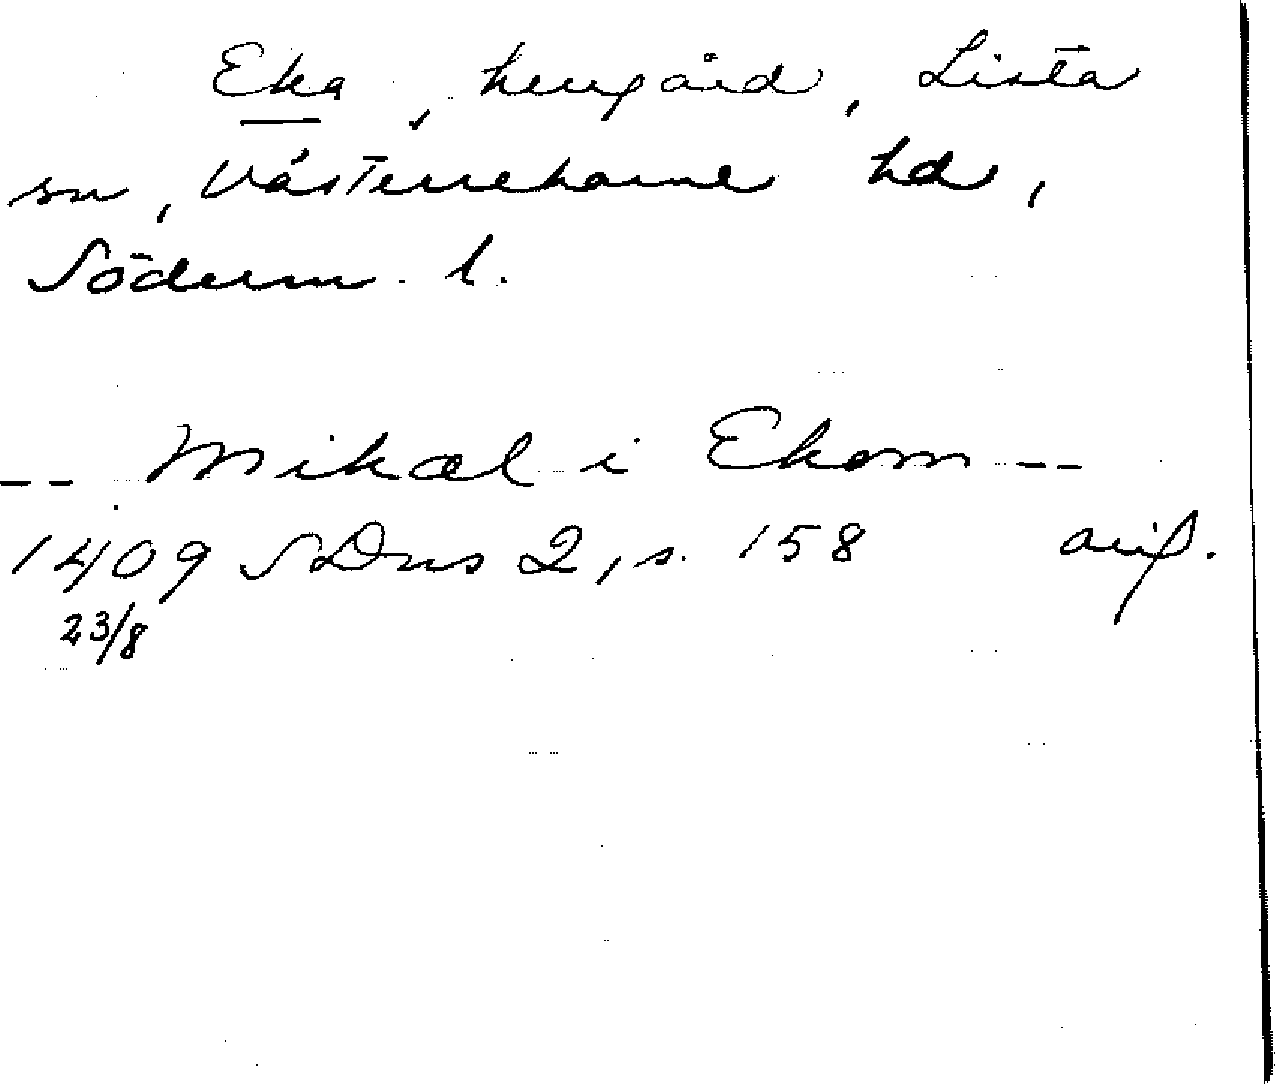 Eka, herrgård, Lista
sn, Västerrekarne hd,
Söderm. l.
-- Mikæl i Ekom --
1409 SDns 2, s. 158 avs.
23/8